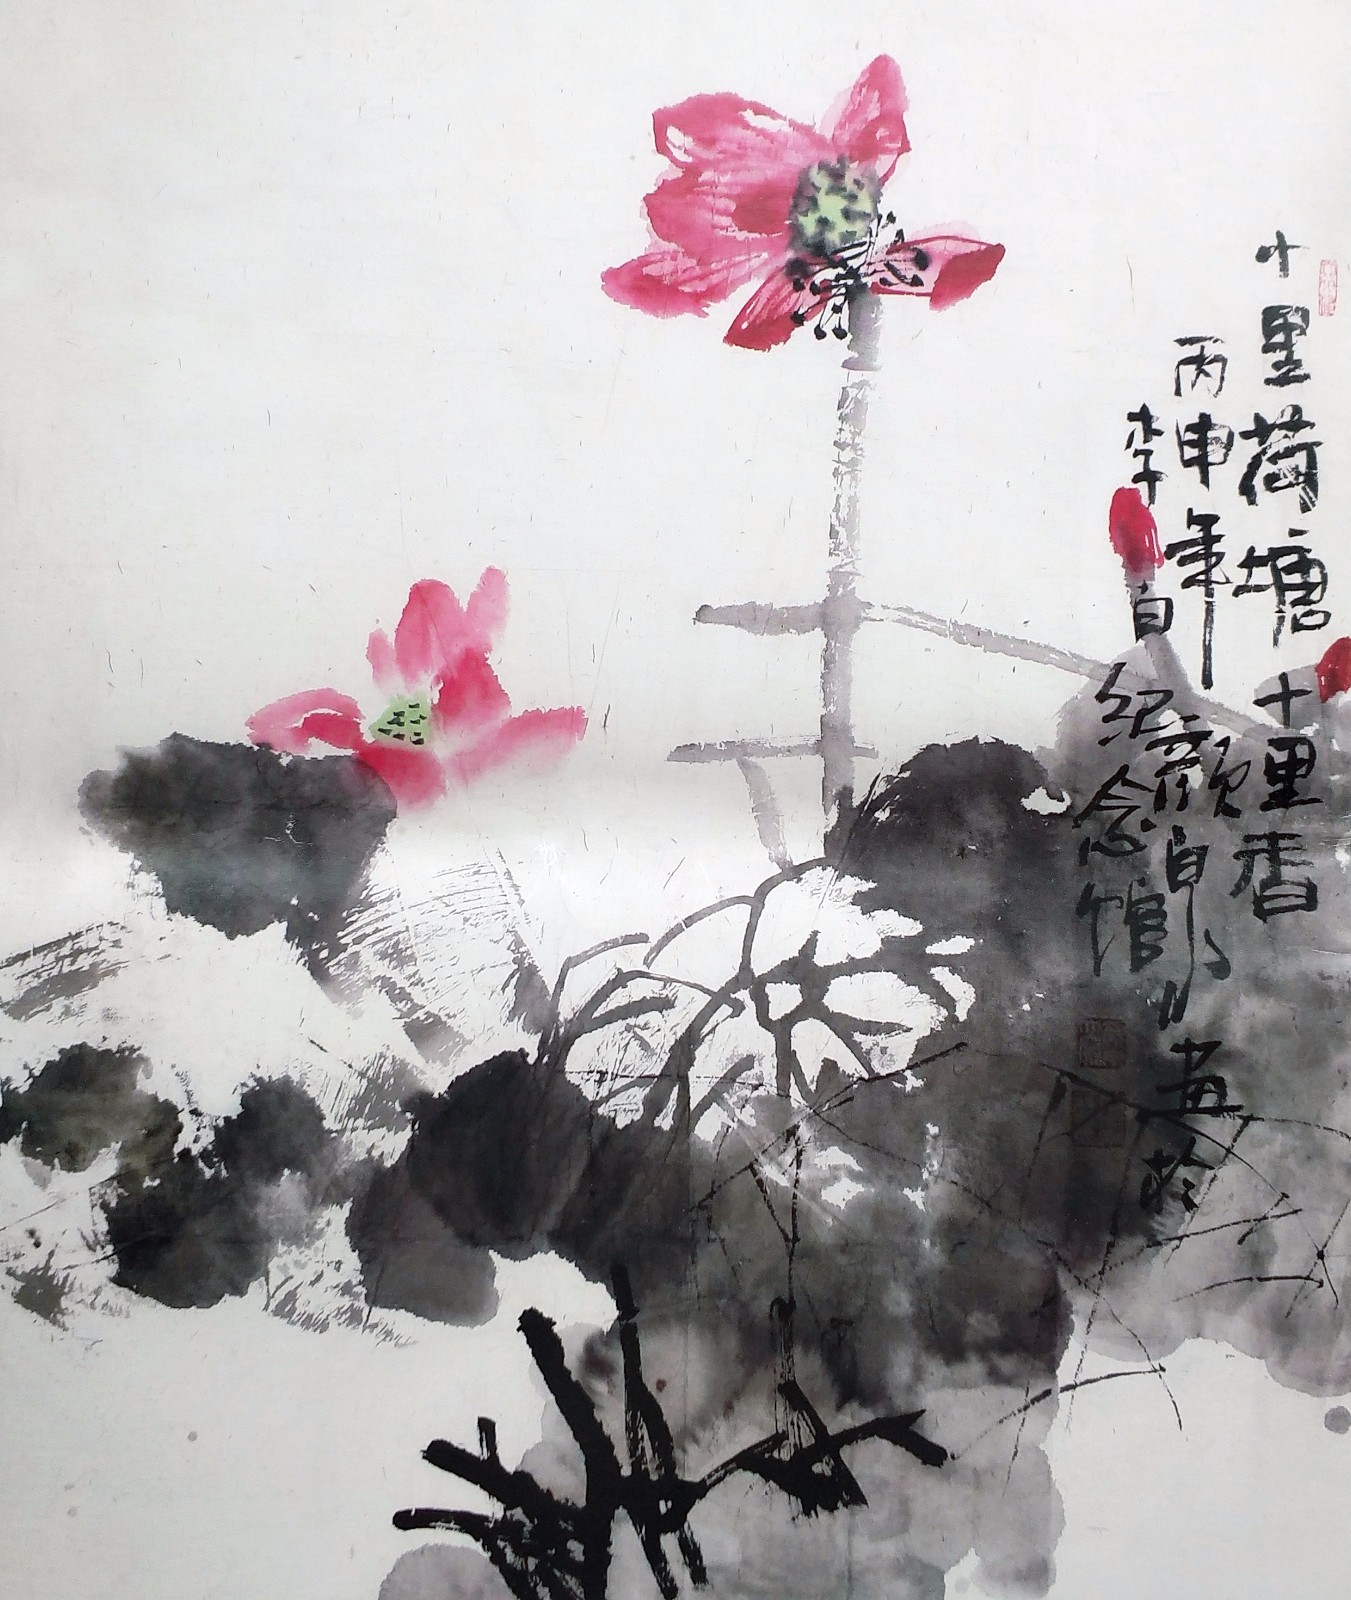 十里荷塘十里香
丙申年颜自川画于
李白纪念馆